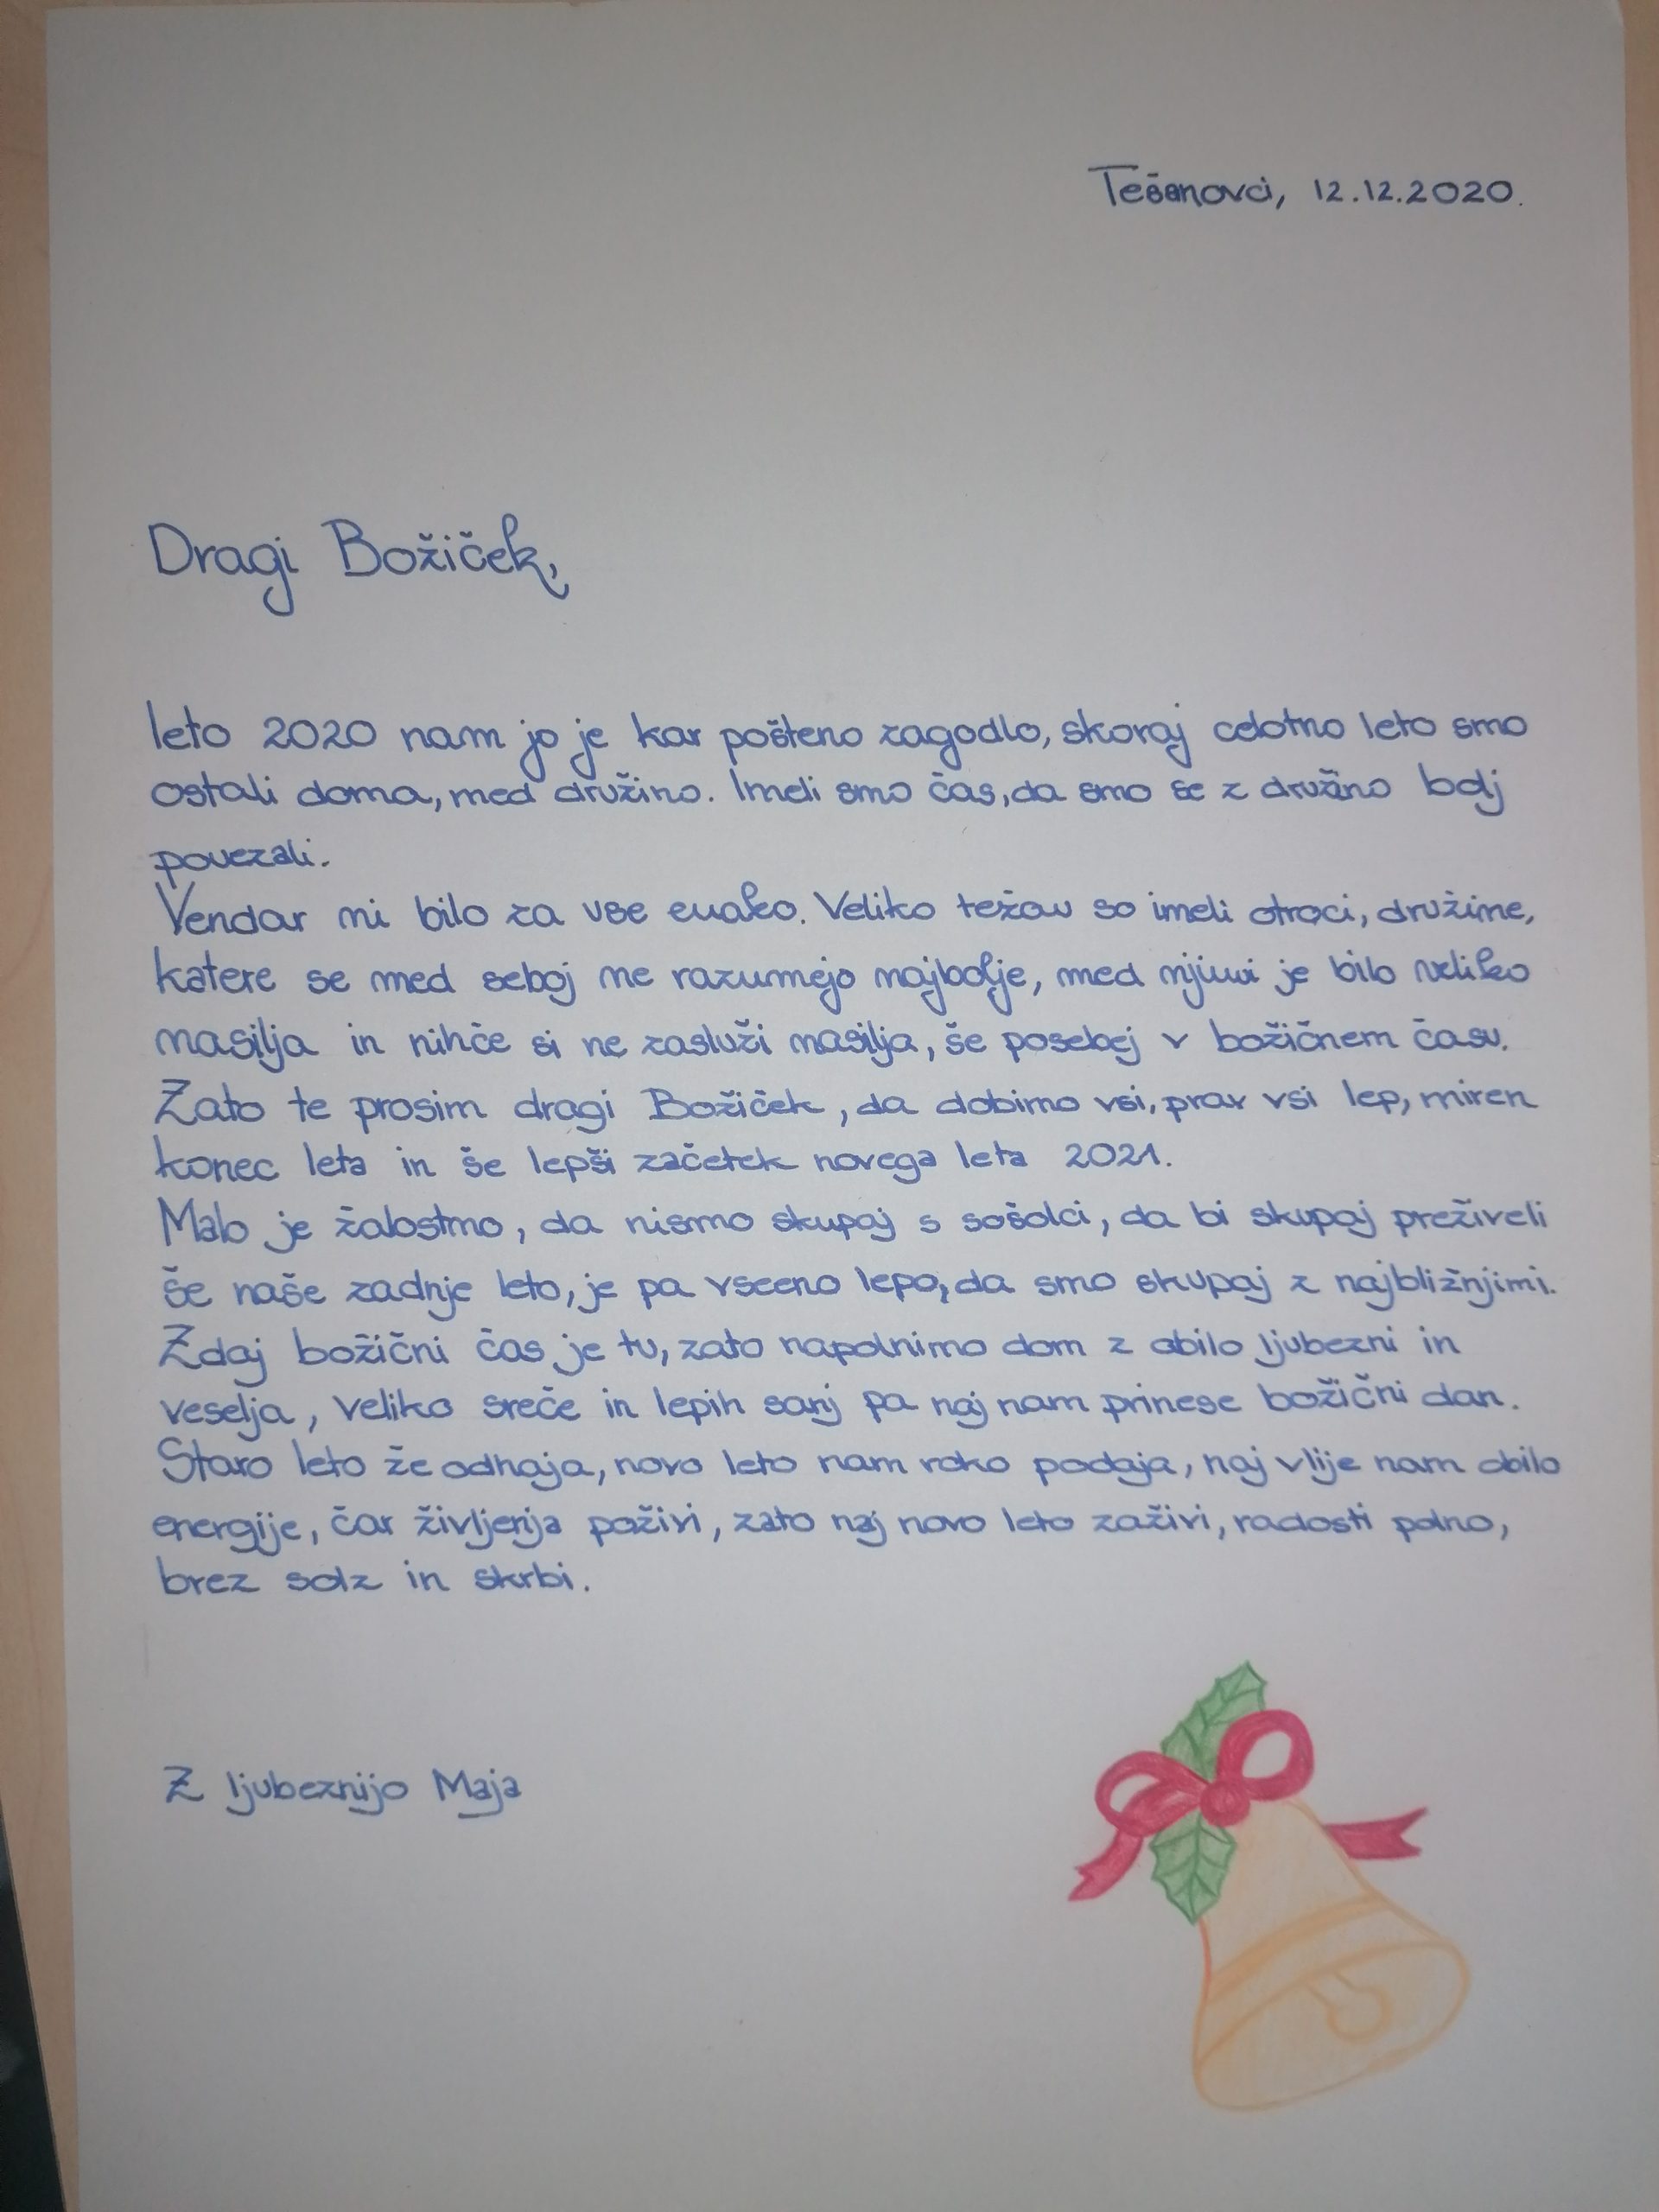 Tešanovci, 12.12.2020.
Dragi Božiček,
leto 2020 nam jo je kar pošteno zagodlo, skoraj celotno leto smo
ostali doma, med družino. Imeli smo čas, da smo se z družino bolj
povezali.
Vendar ni bilo za vse enako. Veliko težav so imeli otroci, družine,
katere se med seboj ne razumejo najbolje, med njimi je bilo veliko
nasilja in nihče si ne zasluži nasilja, še posebej v božičnem času.
Zato te prosim dragi Božiček, da dobimo vsi, prav vsi lep, miren
konec leta in še lepši začetek novega leta 2021.
Malo je žalostno, da nismo skupaj s sošolci, da bi skupaj preživeli
še naše zadnje leto, je pa vseeno lepo, da smo skupaj z najbližnjimi.
Zdaj božični čas je tu, zato napolnimo dom z obilo ljubezni in
veselja, veliko sreče in lepih sanj pa naj nam prinese božični dan.
Staro leto že odhaja, novo leto nam roko podaja, naj vlije nam obilo
energije, čar življenja poživi, zato naj novo leto zaživi, radosti polno,
brez solz in skrbi.
Z ljubeznijo Maja